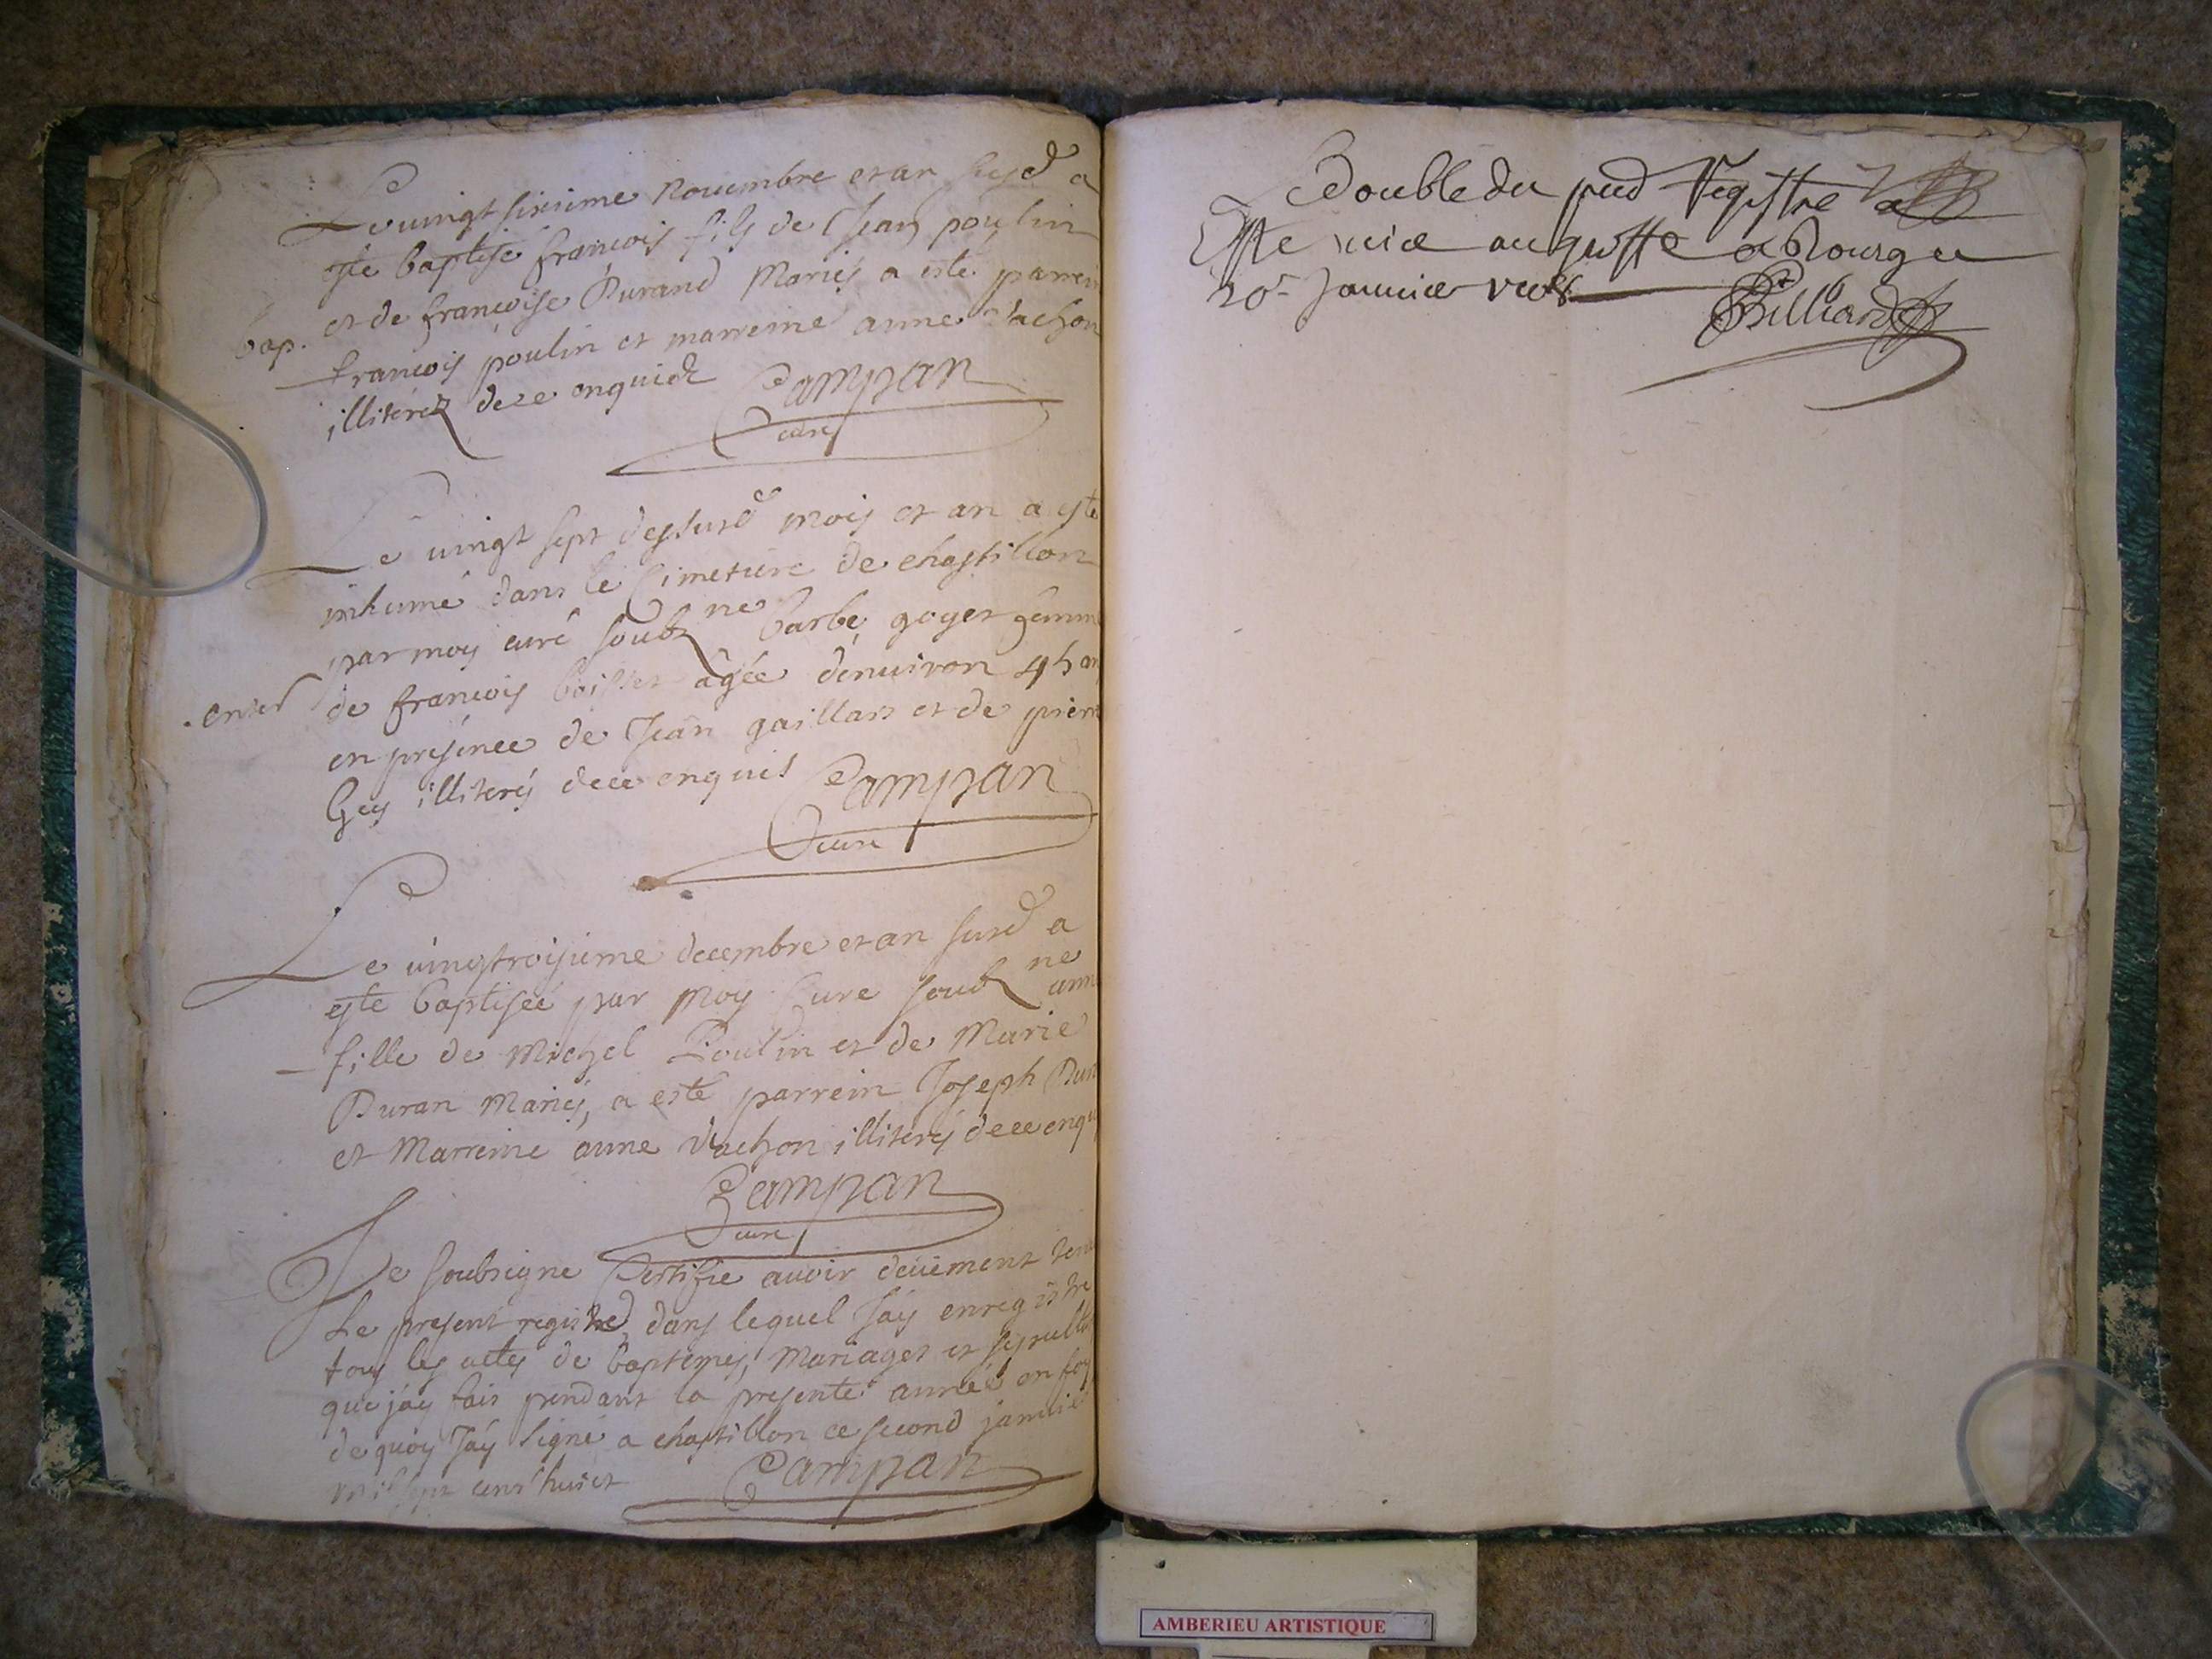 Le vingt sixieme Novembre et an susd a
este baptisé françois fils de Jean poulin
bap. et de françoise Durand Mariés a esté parrein
françois poulin et marreine anne Vachon
illiterez de ce enquis Campan
curé
Le vingt sept dessusd mois et an a esté
inhumé dans le Cimetiere de chastillon
par moy curé soubzne barbe goyet femme
enter de francois agée denuiron 45 ans
en presence de Jean gaillard et de pierre
illiterés de ce enquis Campan
curé
Le vingtroisieme decembre et an susd a
este baptiseé par Moy Curé soubzne anne
fille de Michel Poulin et de Marie
Duran Mariés, a esté parrein Joseph
et Marreine anne Vachon illiterés de ce enquis
Campan
curé
Je soubsigne Certifie auoir deüement tenu
Le present registre dans lequel J'ay enregistré
tous les actes de baptemes, Mariages et sepultures
que j'ay fait pendant la presente année en foy
de quoy J'ay signé a chastillon ce second januier
mil sept cens huict Campan
Double du pnd Registre a
Este mis au greffe a Bourg ce
20e Januier
Billiard
AMBERIEU ARTISTIQUE